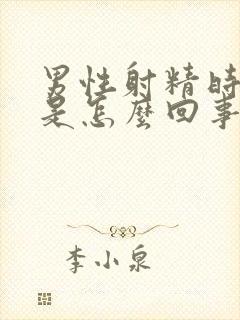 男性射精时
是怎麼回事
李小泉